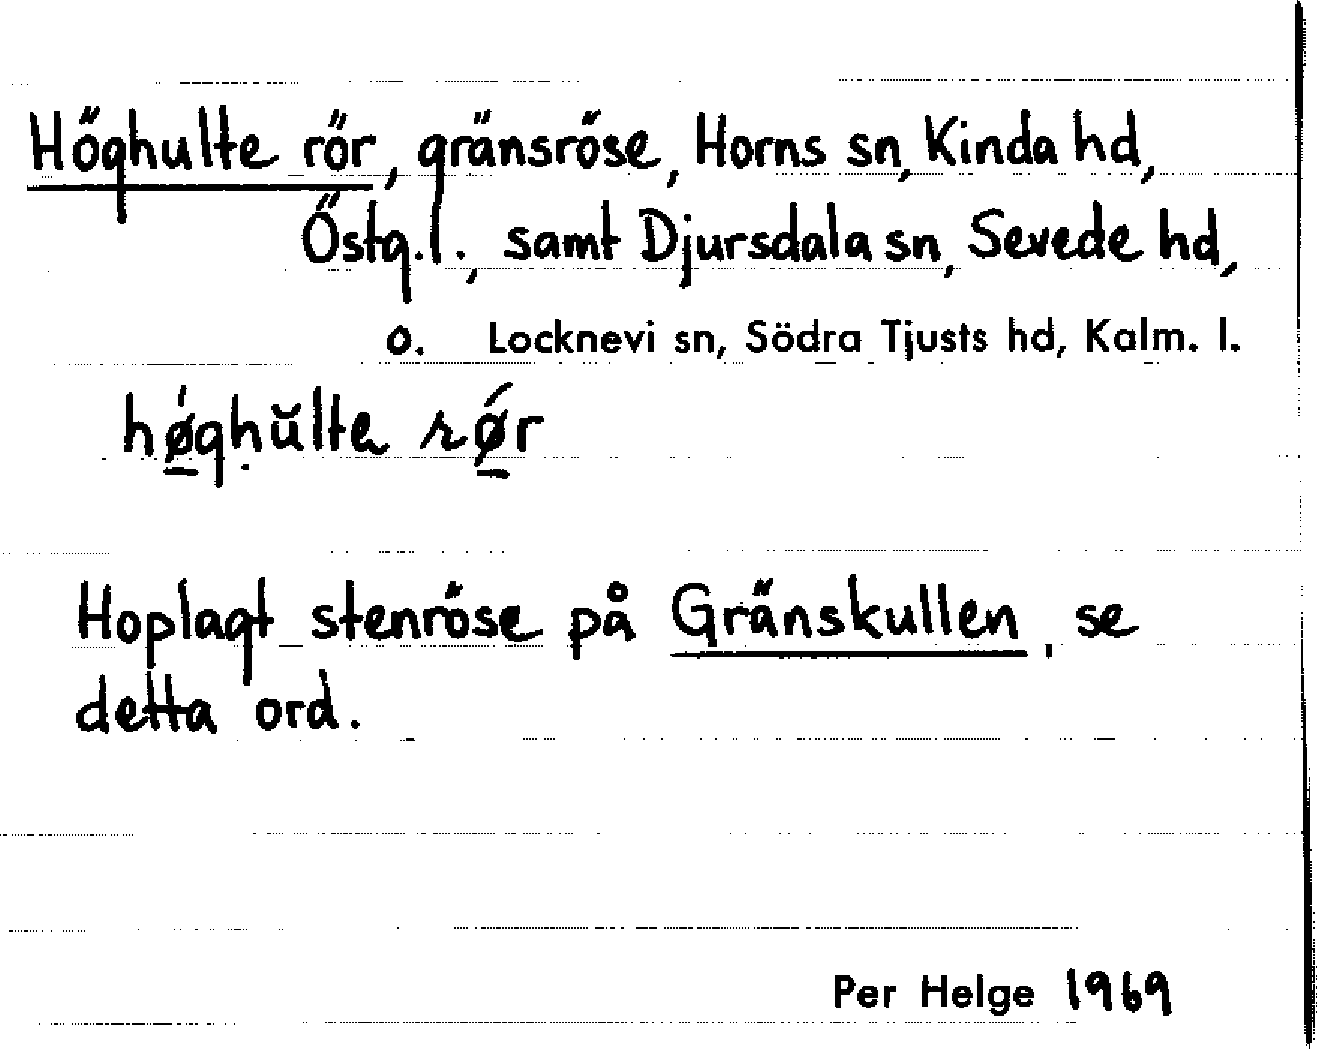 Höghulte rör, gränsröse, Horns sn, Kinda hd,
Östg.l., samt Djursdala sn, Sevede hd,
o. Locknevi sn, Södra Tjusts hd, Kalm. l.
hǿ̠gḥŭlte rǿ̠r
Hoplagt stenröse på Gränskullen, se
detta ord.
Per Helge 1969